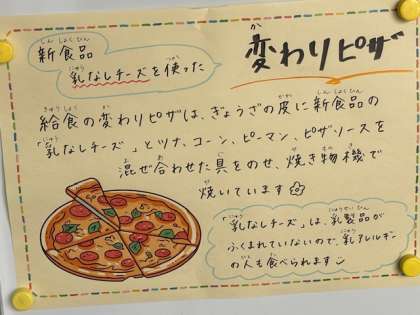 新食品
乳なしチーズを使った
変わりピザ
給食の変わりピザは、ぎょうざの皮に新食品の
「乳なしチーズ」とツナ、コーン、ピーマン、ピザソースを
混ぜ合わせた具をのせ、焼き物機で
焼いています
「乳なしチーズ」は、乳製品が
ふくまれていないので、乳アレルギー
の人も食べられます